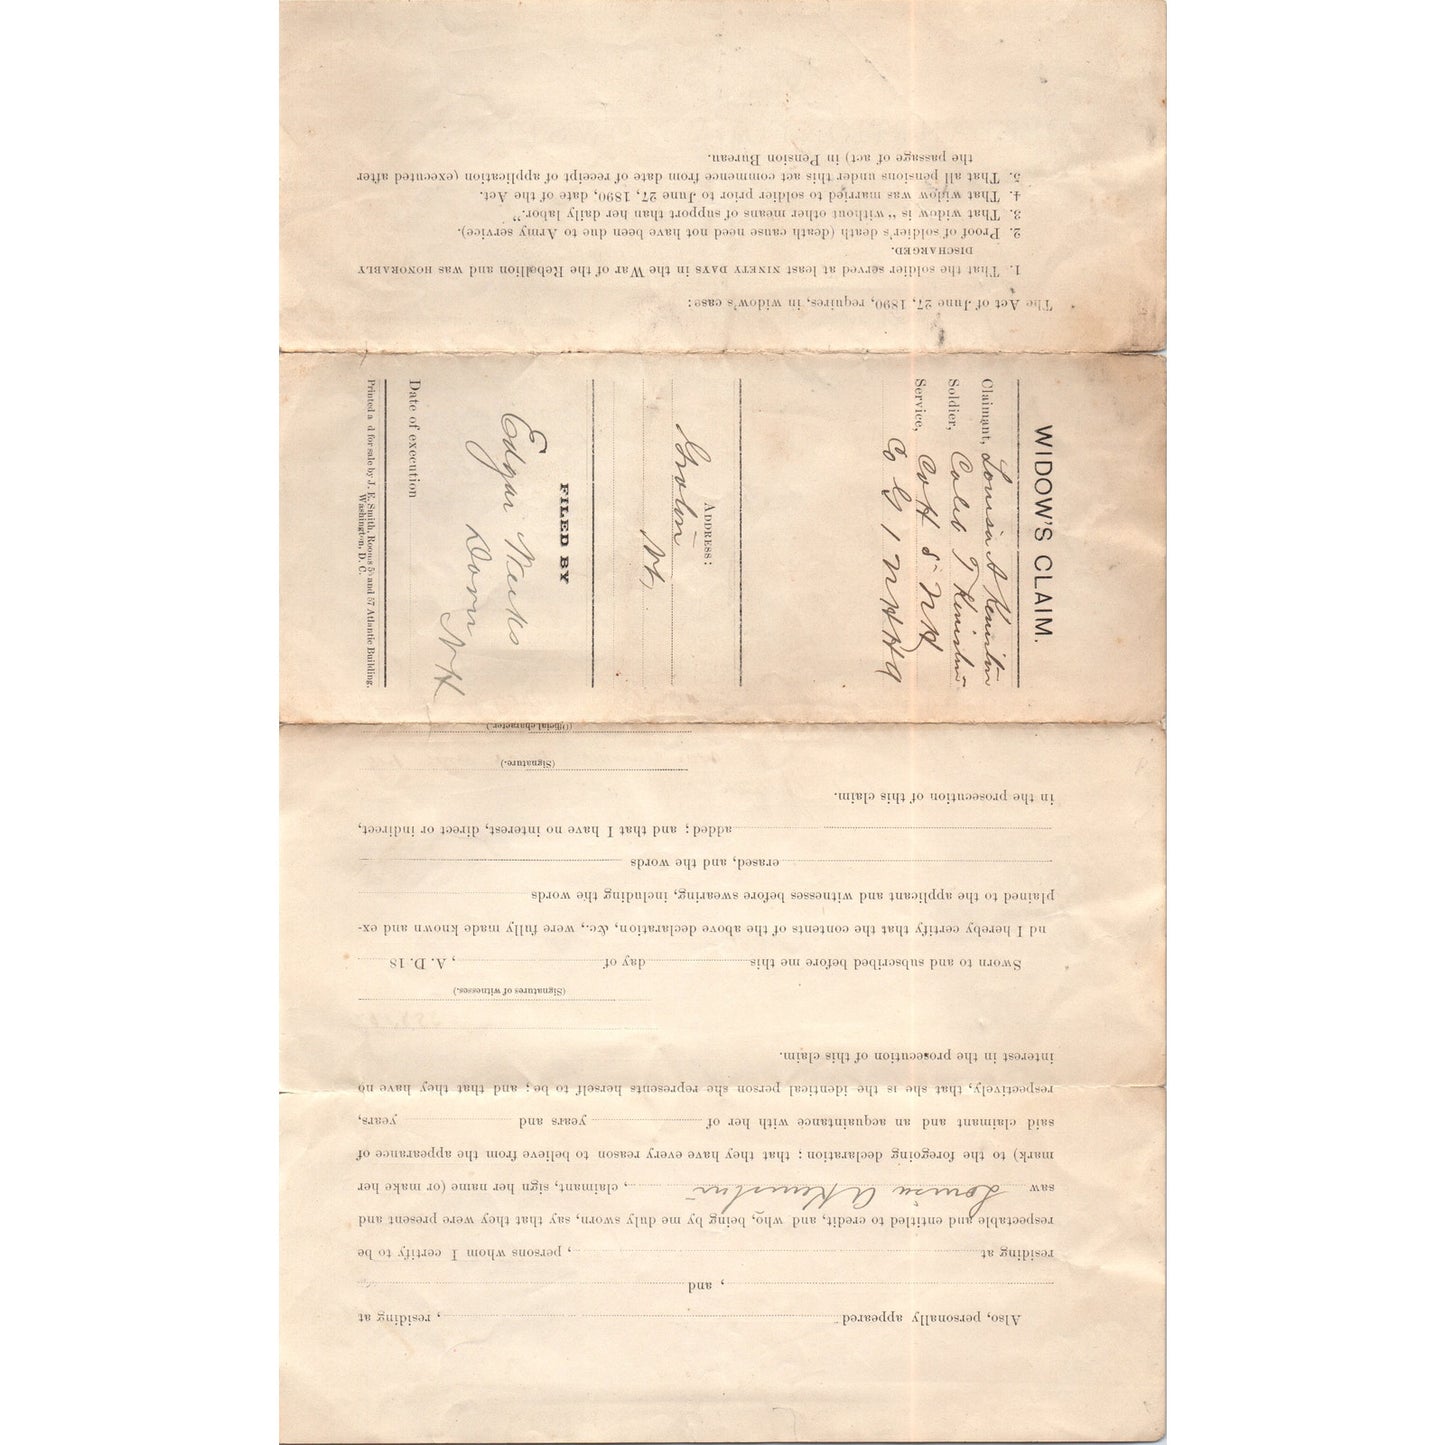 Also, personally appeared , residing at
, and
residing at , persons whom I certify to be
respectable and entitled to credit, and who, being by me duly sworn, say that they were present and
saw Louisa A Keniston , claimant, sign her name (or make her
mark) to the foregoing declaration; that they have every reason to believe from the appearance of
said claimant and an acquaintance with her of years and years,
respectively, that she is the identical person she represents herself to be; and that they have no
interest in the prosecution of this claim.
(Signatures of witnesses.)
Sworn to and subscribed before me this day of , A. D. 18
nd I hereby certify that the contents of the above declaration, &c., were fully made known and ex-
plained to the applicant and witnesses before swearing, including the words
erased, and the words
added; and that I have no interest, direct or indirect,
in the prosecution of this claim.
(Signature.)
(Official character.)
WIDOW'S CLAIM.
Claimant, Louisa A Keniston
Soldier, Caleb T Keniston
Service, Co H 8 NH
Co G 1 N H H A
ADDRESS:
Groton
Vt
FILED BY
Edgar Weeks
Dover
NH
Date of execution
Printed a d for sale by J. E. Smith, Rooms 55 and 57 Atlantic Building,
Washington, D. C.
The Act of June 27, 1890, requires, in widow's case:
1. That the soldier served at least NINETY DAYS in the War of the Rebellion and was HONORABLY
DISCHARGED.
2. Proof of soldier's death (death cause need not have been due to Army service).
3. That widow is "without other means of support than her daily labor."
4. That widow was married to soldier prior to June 27, 1890, date of the Act.
5. That all pensions under this act commence from date of receipt of application (executed after
the passage of act) in Pension Bureau.